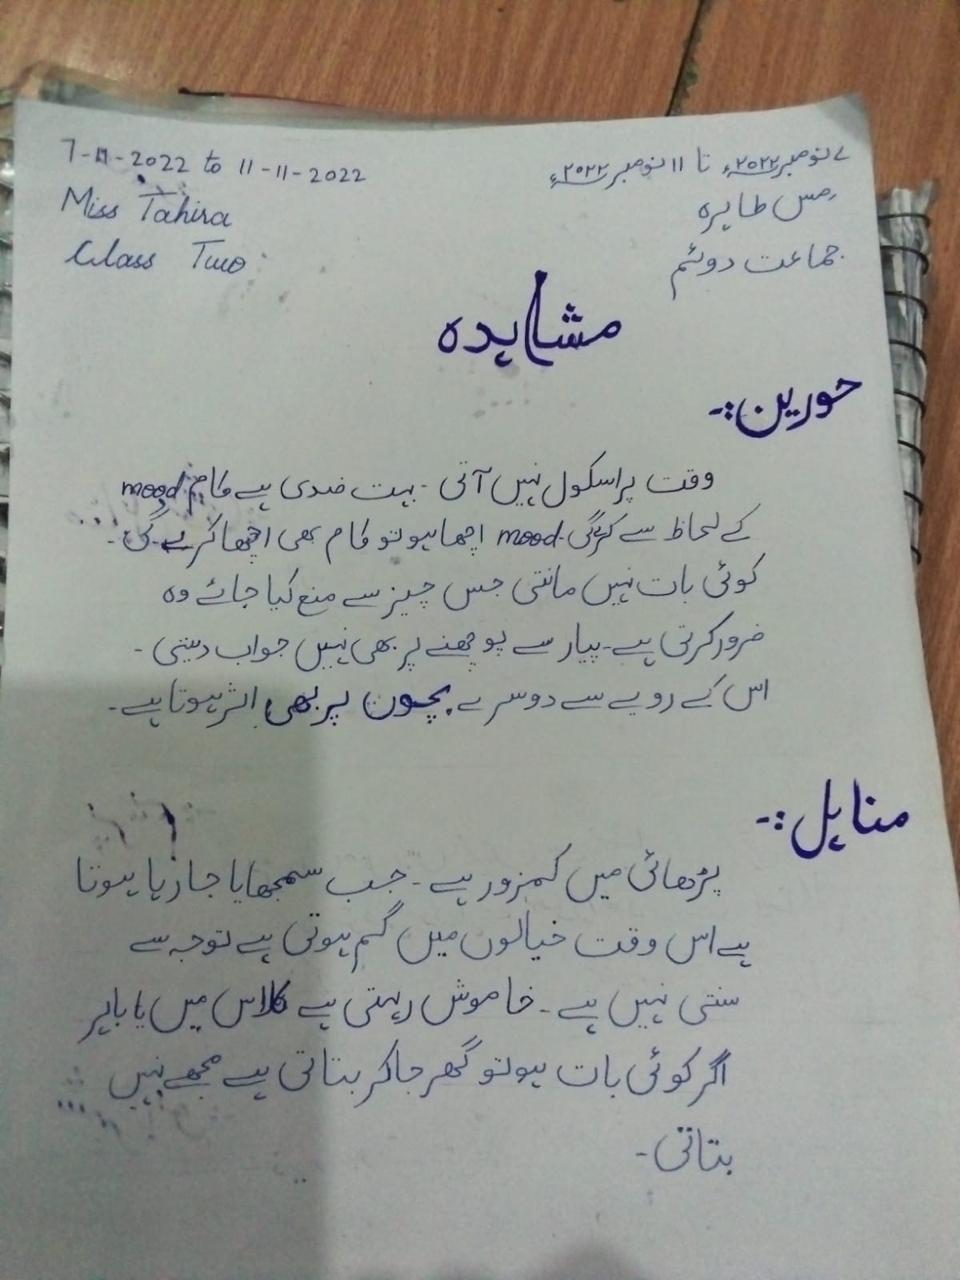 7-11-2022 to 11-11-2022
۷ نومبر ۲۰۲۲ء تا ۱۱ نومبر ۲۰۲۲ء
Miss Tahira
مس طاہرہ
Class Two
جماعت دوئم
مشاہدہ
حورین:-
وقت پر اسکول نہیں آتی - بہت ضدی ہے کام mood
کے لحاظ سے کرگی - mood اچھا ہو تو کام بھی اچھا کرے گی -
کوئی بات نہیں مانتی جس چیز سے منع کیا جائے وہ
ضرور کرتی ہے - پیار سے پوچھنے پر بھی نہیں جواب دیتی -
اس کے رویے سے دوسرے بچوں پر بھی اثر ہوتا ہے -
مناہل:-
پڑھائی میں کمزور ہے - جب سمجھایا جا رہا ہوتا
ہے اس وقت خیالوں میں گم ہوتی ہے توجہ سے
سنتی نہیں ہے - خاموش رہتی ہے کلاس میں یا باہر
اگر کوئی بات ہو تو گھر جا کر بتاتی ہے مجھے نہیں
بتاتی -